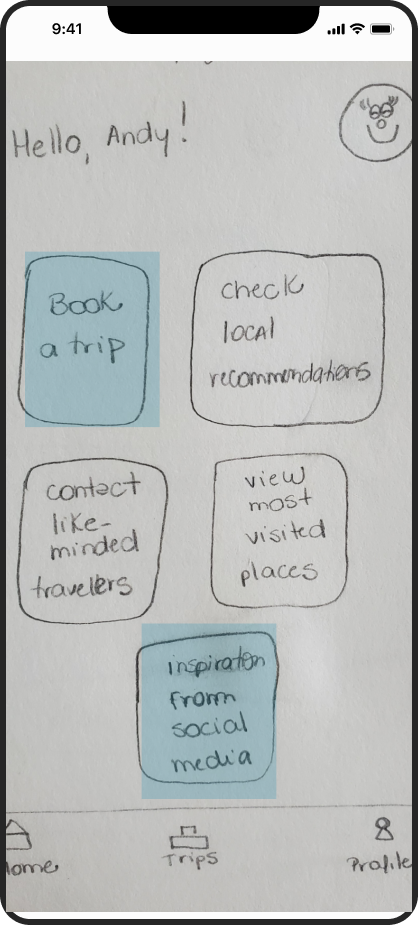 9:41
Hello, Andy!
Book
a trip
check
local
recommendations
contact
like-
minded
travellers
view
most
visited
places
inspiration
from
social
media
Home
Trips
Profile